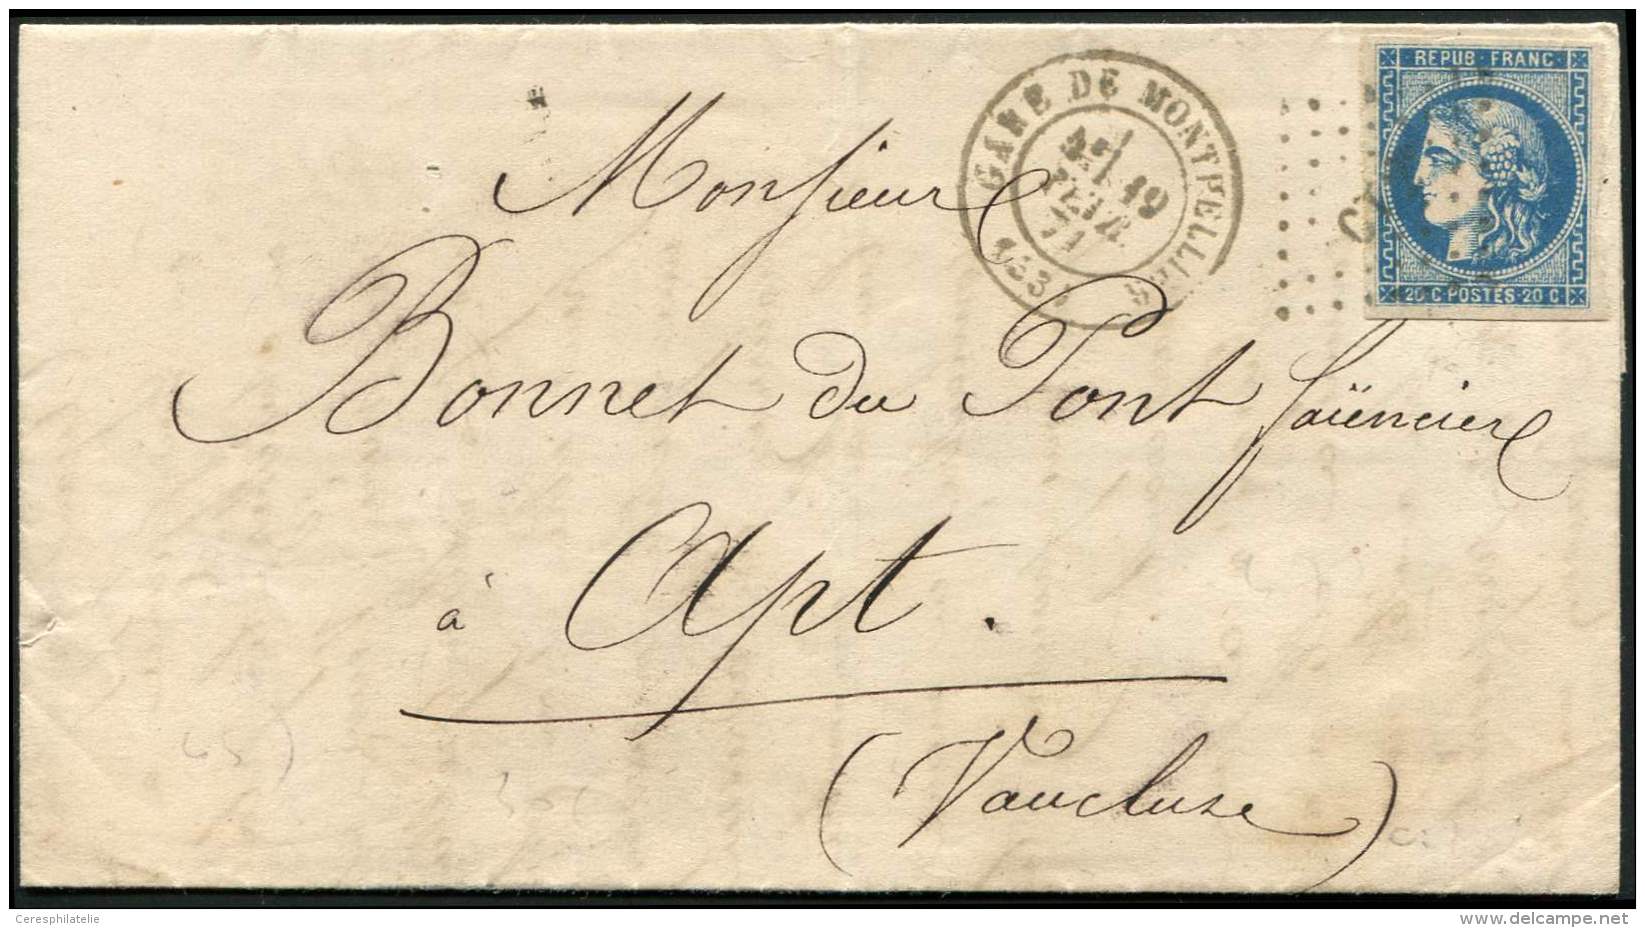 GARE DE MONTPELLIER
19
FEVR.
71
REPUB · FRANC ·
20 C POSTES · 20 C
Monsieur
Bonnet du Pont faïencier
à Apt.
(Vaucluse)
Ceresphilatelie
www.delcampe.net